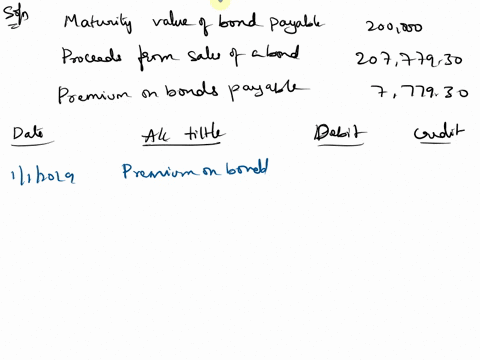 Soln Maturity value of bond payable 200,000
Proceeds from sales of a bond 207,779.30
Premium on bonds payable 7,779.30
Date A/c tiltle Debit Credit
1/1/2029 Premium on bond